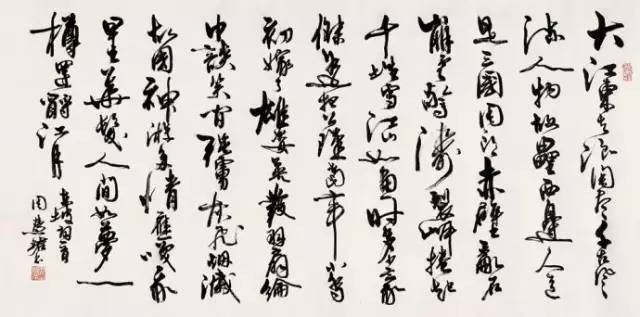 大江東去浪淘盡千古風
流人物故壘西邊人道
是三國周郎赤壁亂石
崩雲驚濤裂岸捲起
千堆雪江山如畫一時多少豪
傑遙想公瑾當年小喬
初嫁了雄姿英發羽扇綸
巾談笑間強虜灰飛煙滅
故國神游多情應笑我
早生華髮人間如夢一
樽還酹江月
東坡詞一首
周慧珺